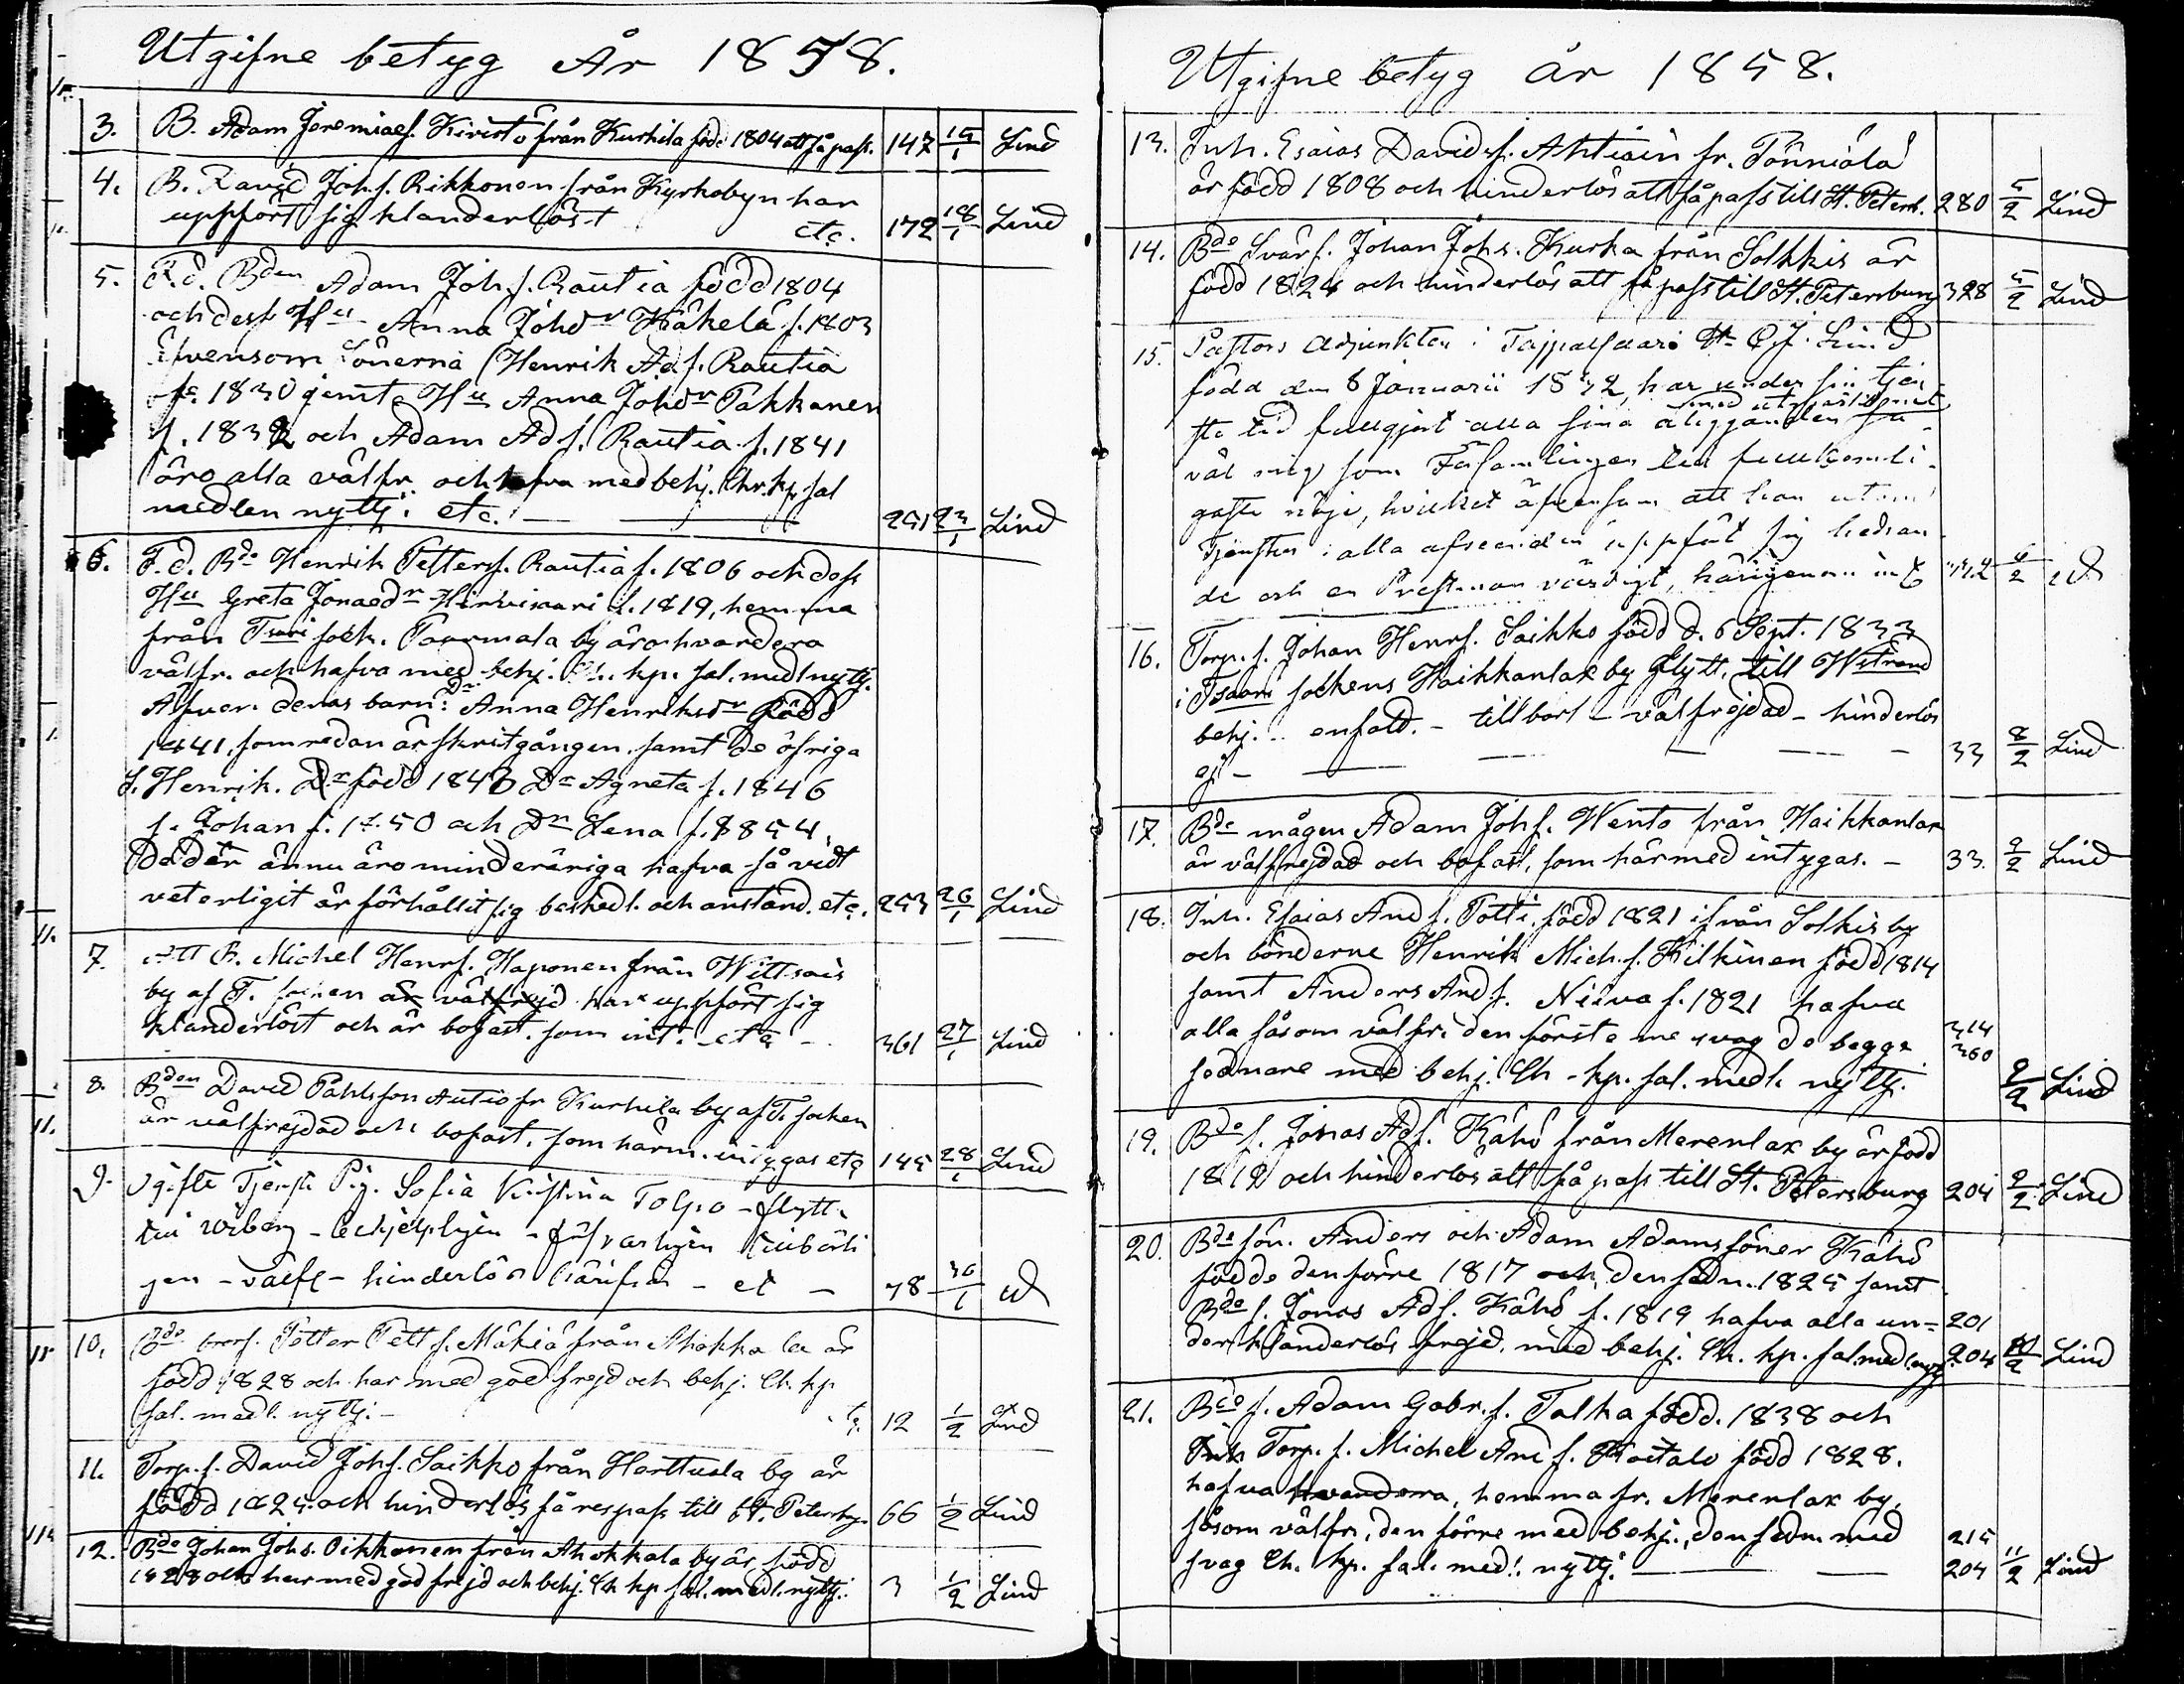 Utgifne betyg År 1858.
3. B. Adam Jeremiaes. Kiristö från Kurkila född 1804 att få pass. 147 15/1 Lind
4. B. David Joh.s. Rikkonen från Kyrkobyn har
uppfört sig klanderlöst etc. 172 18/1 Lind
5. F.d. Bden Adam Joh.s. Rautia född 1804
och dess Hu Anna Johdr Häkelä f. 1803
äfvensom Sönerna (Henrik Ad.s. Rautia
f. 1830 jemte Hu Anna Johdr Pakkanen
f. 1832 och Adam Ad.s. Rautia f. 1841
äro alla välfr. och hafva med behj. Chr. kp. sal
medlen nyttj: etc. 251 23/1 Lind
6. F.d. Bde Henrik Petters. Rautia f. 1806 och dess
Hu Greta Jonaedr Hirvisaari f. 1819, hemma
från sock. Paarmala by äro hvardera
välfr. och hafva med behj. Ch. kp. sal. medl nyttj.
Äfven deras barn: Dr Anna Henriksdr född
1841, som redan är skritgången, samt de öfriga
S. Henrik. född 1843 Dr Agneta f. 1846
s. Johan f. 1850 och Dr Lena f. 1854,
då där ännu äro minderåriga hafva så vidt
veterligit är förhållit sig beskedl. och anständ. etc. 253 26/1 Lind
7. att B. Michel Henrs. Haponen från Wittsais
by af T. socken är välfrejd har uppfört sig
klanderlöst och är bofast, som int. etc 361 27/1 Lind
8. Bden David Påhlsson Autio fr Kurkila by af T. socken
är välfrejdad och bofast, som härm. intygas etc 145 28/1 Lind
9. Ogifte Tjenste Pig. Sofia Kristina Tolpo - flytt.
till Wiborg - behjelpligen - försvarligen tillbörli
gen - välfr - hinderlös härifrån - et - 78 30/1
10. Bde brors. Petter Pett s. Mäkiä från Ahokka la är
född 1828 och har med god frejd och behj. Ch. kp
sal. medl. nyttj: - 12 1/2 Lind
11. Torp. s. David Joh.s. Saikko från Harttusla by är
född 1825 och hinderlös få respass till St. Petersbg. 66 1/2 Lind
12. Bde Johan Johs. Oikkonen från Ahokkala by är född
1828 och har med god frejd och behj. Ch kp sal. medl. nyttj. 3 1/2 Lind
Utgifne betyg år 1858.
13. Inh. Esaias Davids.s. Ahtiain fr. Pönniälä
är född 1808 och hinderlös att få pass till St. Petersb. 280 5/2 Lind
14. Bde Svär s. Johan Johs. Kurka från Solkkis är
född 1824 och hinderlös att få pass till St. Petersburg 328 5/2 Lind
15. Pastors Adjunkten i Taipalsaari Hr C.J. Lind
född den 8 Januarii 1832, har under sin tjen
ste tid fullgjort alla sina åligganden så
väl mig som Församlingen till fullkomli
gaste nöje, hvilket äfvensom att han utom
Tjensten i alla afseenden uppfört sig hedran
de och en Prestman värdigt, härigenom int 6/2
16. Torp. s. Johan Henrs. Saikko född d. 6 Sept. 1833
i Tsaari sockens Haikkanlax by flytt. till Wstrand
behj. - enfald. - till barl - välfrejdad - hinderlös
33 8/2 Lind
17. Bde mågen Adam Joh s. Wento från Haikkanlax
är välfrejdad och bofast, som härmed intygas. - 33. 9/2 Lind
18. Inh. Esaias And s. Potti, född 1821 ifrån Solkis by
och bönderne Henrik Mich. s. Kilkinen född 1814
samt Anders And s. Niiva f. 1821 hafva
alla såsom välfr. den förste me svag de begge 314
360
sednare med behj. Ch - kp. sal. medl. nyttj. 9/2 Lind
19. Bde s. Jonas Ad s. Kähö från Merenlax by är född
1819 och hinderlös att få pass till St. Petersburg 204 9/2 Lind
20. Bde sön. Anders och Adam Adamssöner Kähö
födde den förre 1817 och den sedn. 1825 samt
Bde s. Jonas Ads. Kähö f. 1819 hafva alla un= 201
der klanderlös frejd, med behj. Ch. kp. sal. medl nyj. 204 Lind
21. Bde s. Adam Gabr. s. Talka född. 1838 och
Inh Torp. s. Michel And s. född 1828.
hafva hvardera, hemma fr. Merenlax by,
såsom välfr., den förre med behj., den sedn. med 215
svag Ch. kp. sal. medl. nyttj: 204 11/2 Lind